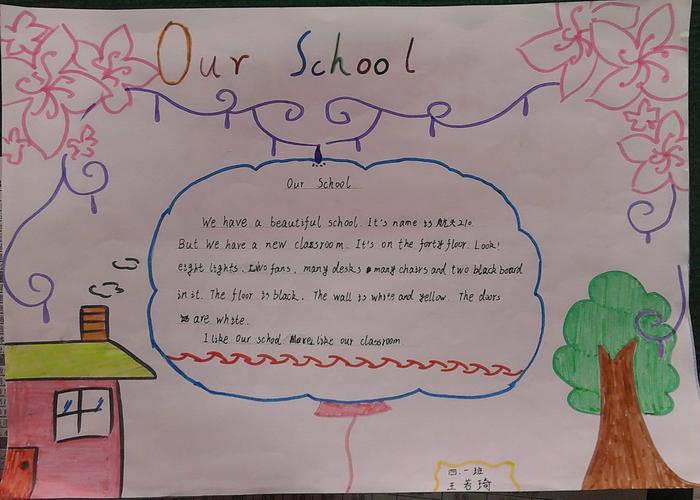 Our School
Our School
We have a beautiful school. It's name is 航天210.
But We have a new classroom. It's on the forty floor. Look!
eight lights, two fans, many desks many chairs and two black board
in it. The floor is black. The wall is white and yellow. The doors
are white.
I like Our school. like our classroom
四.一班
王若琦